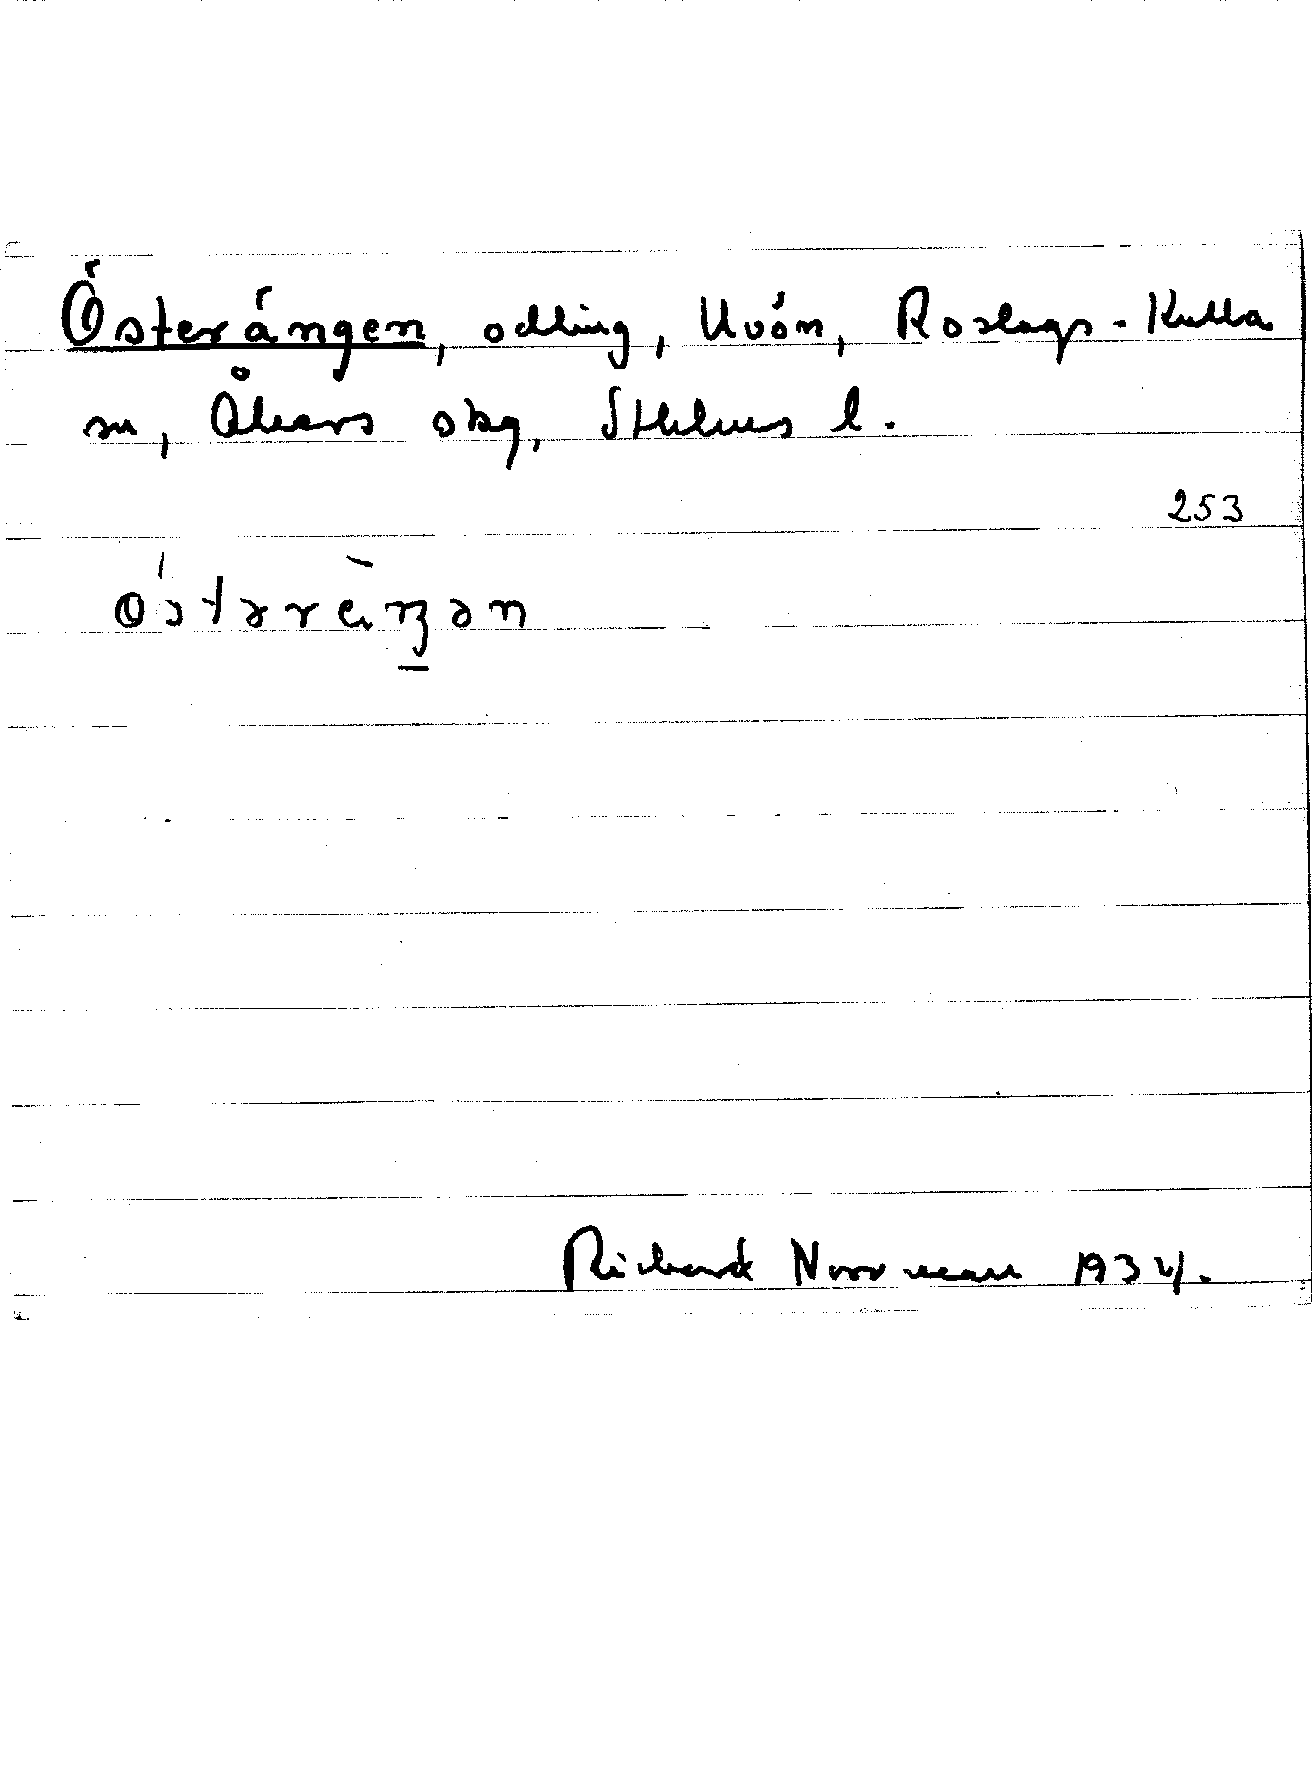 Österängen, odling, Uvön, Roslags-Kulla
sn, Åkers skg, Sthlms l.
253
östəräŋən
Richard Norrman 1934.